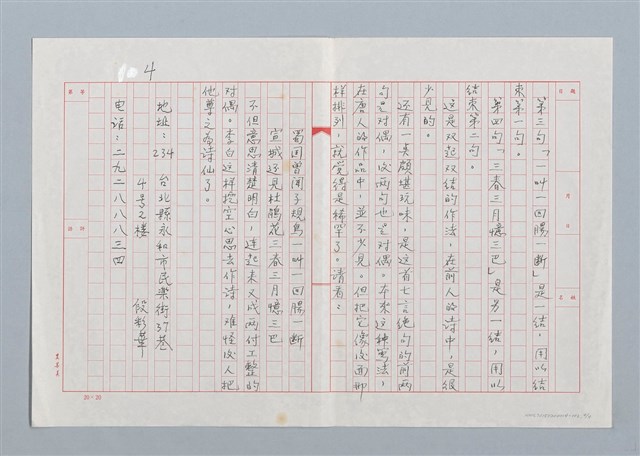 第三句「一叫一回腸一斷」是一結，用以結
束第一句。
第四句「三春三月憶三巴」是另一結，用以
結束第二句。
這是双起双结的作法，在前人的诗中，是很
少見的。
还有一点颇堪玩味，是這首七言绝句的前两
句是对偶，後两句也是对偶。本來这种寫法，
在唐人的作品中，並不少見。但把它像後面那
样排列，就覺得是稀罕了。请看：
蜀国曾闻子规鳥一叫一回腸一斷
宣城还見杜鵑花三春三月憶三巴
不但意思清楚明白，連起來又成两付工整的
对偶。李白这样挖空心思去作诗，难怪後人把
他尊之為诗仙了。
地址：234 台北縣永和市民樂街37巷
4号2樓 段彩華
电话：二九二八八八三四
4
20×20